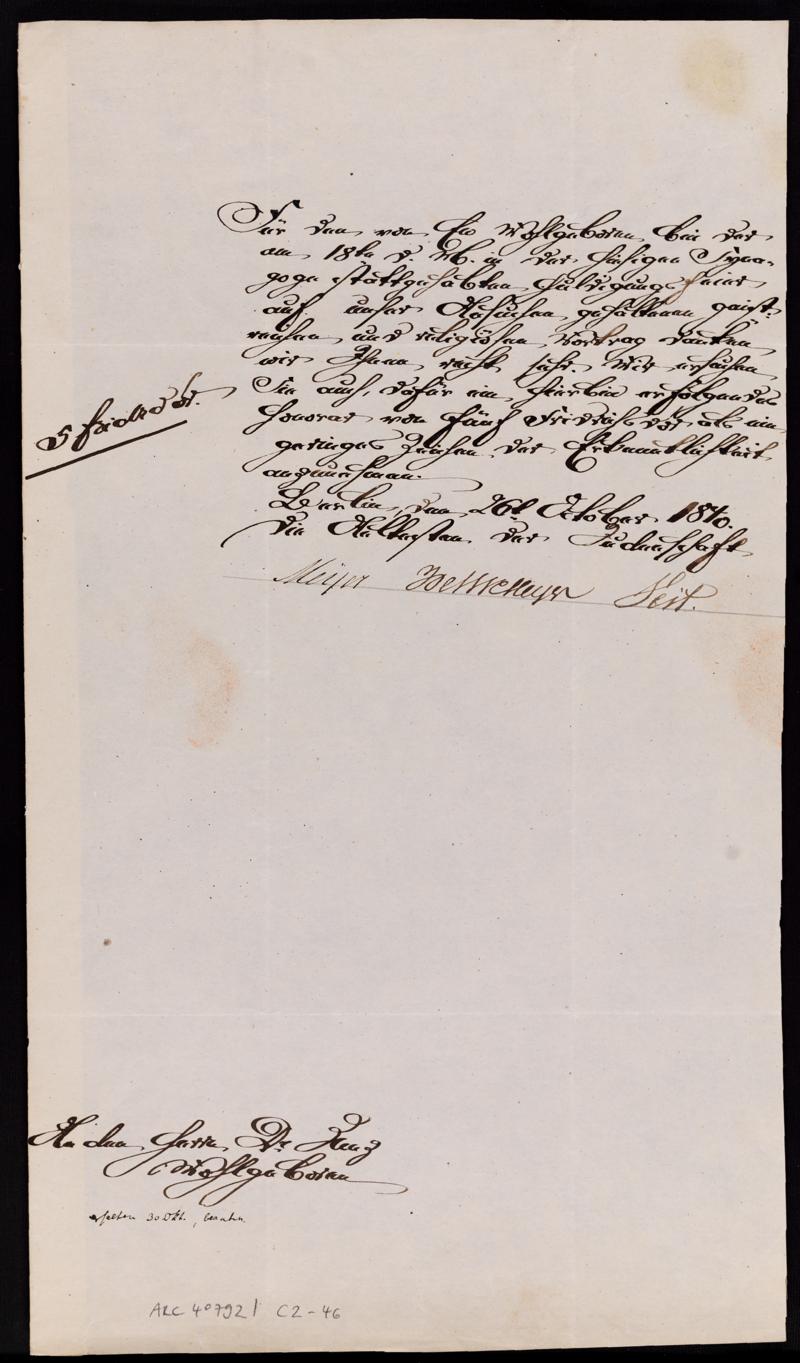 Für den von Ew Wohlgeboren bei der
am 18ten d. Mts. in der hiesigen Syna-
goge stattgehabten Huldigungsfeier
auf unser Ansuchen gehaltenen geist-
reichen und religiösen Vortrag danken
wir Ihnen recht sehr. Wir ersuchen
Sie auch, dafür ein hierbei erfolgendes
Honorar von fünf Friedrichsdor als ein
geringes Zeichen der Erkenntlichkeit
anzunehmen.
Berlin, den 26t October 1840.
Die Aeltesten der Judenschaft
Meyer Veit.
5 frdrdor.
An den Herrn Dr Zunz
Wohlgeboren
erhalten 30 Okt.,
ARC 4° 792 / C2-46